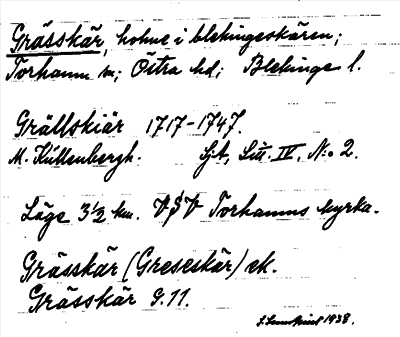 Grässkär, holme i blekingeskären;
Torhamn sn; Östra hd; Blekinge l.
Grällskiär 1717-1747.
M. Küllenbergh. Sjt, Litt. IV, No 2.
Läge 3½ km. VSV Torhamns kyrka.
Grässkär (Greseskär) ek.
Grässkär G.11.
1938.